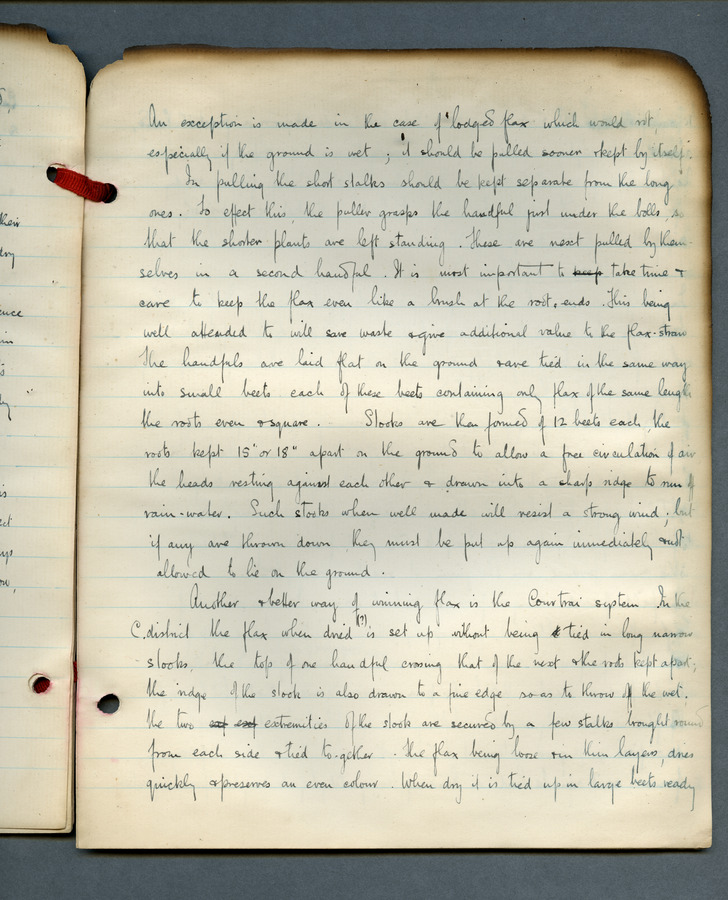 An exception is made in the case of 'lodged flax which would rot,
especially if the ground is wet ; it should be pulled sooner & kept by itself.
In pulling the short stalks should be kept separate from the long
ones. To effect this, the puller grasps the handful just under the bolls, so
that the shorter plants are left standing. These are next pulled by them-
selves in a second handful. It is most important to keep take time &
care to keep the flax even like a brush at the root-ends. This being
well attended to will save waste & give additional value to the flax-straw
The handfuls are laid flat on the ground & are tied in the same way
into small beets each of these beets containing only flax of the same length
the roots even & square. Stooks are then formed of 12 beets each, the
roots kept 15" or 18" apart on the ground to allow a free circulation of air
the heads resting against each other & drawn into a sharp ridge to run off
rain-water. Such stooks when well made will resist a strong wind ; but
if any are thrown down they must be put up again immediately & not
allowed to lie on the ground.
Another & better way of winning flax is the Courtrai system In the
C. district the flax when dried (?) is set up without being tied in long narrow
stooks, the top of one handful crossing that of the next & the roots kept apart;
the ridge of the stook is also drawn to a fine edge so as to throw off the wet.
the two ext ext extremities of the stook are secured by a few stalks brought round
from each side & tied to-gether. The flax being loose & in thin layers, dries
quickly & preserves an even colour. When dry it is tied up in large beets ready
their
dry
ence
in
is
ect
ow,